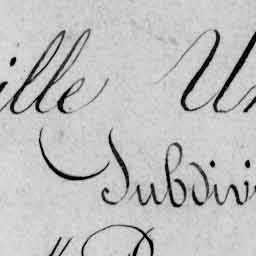 ille Un
Subdivi